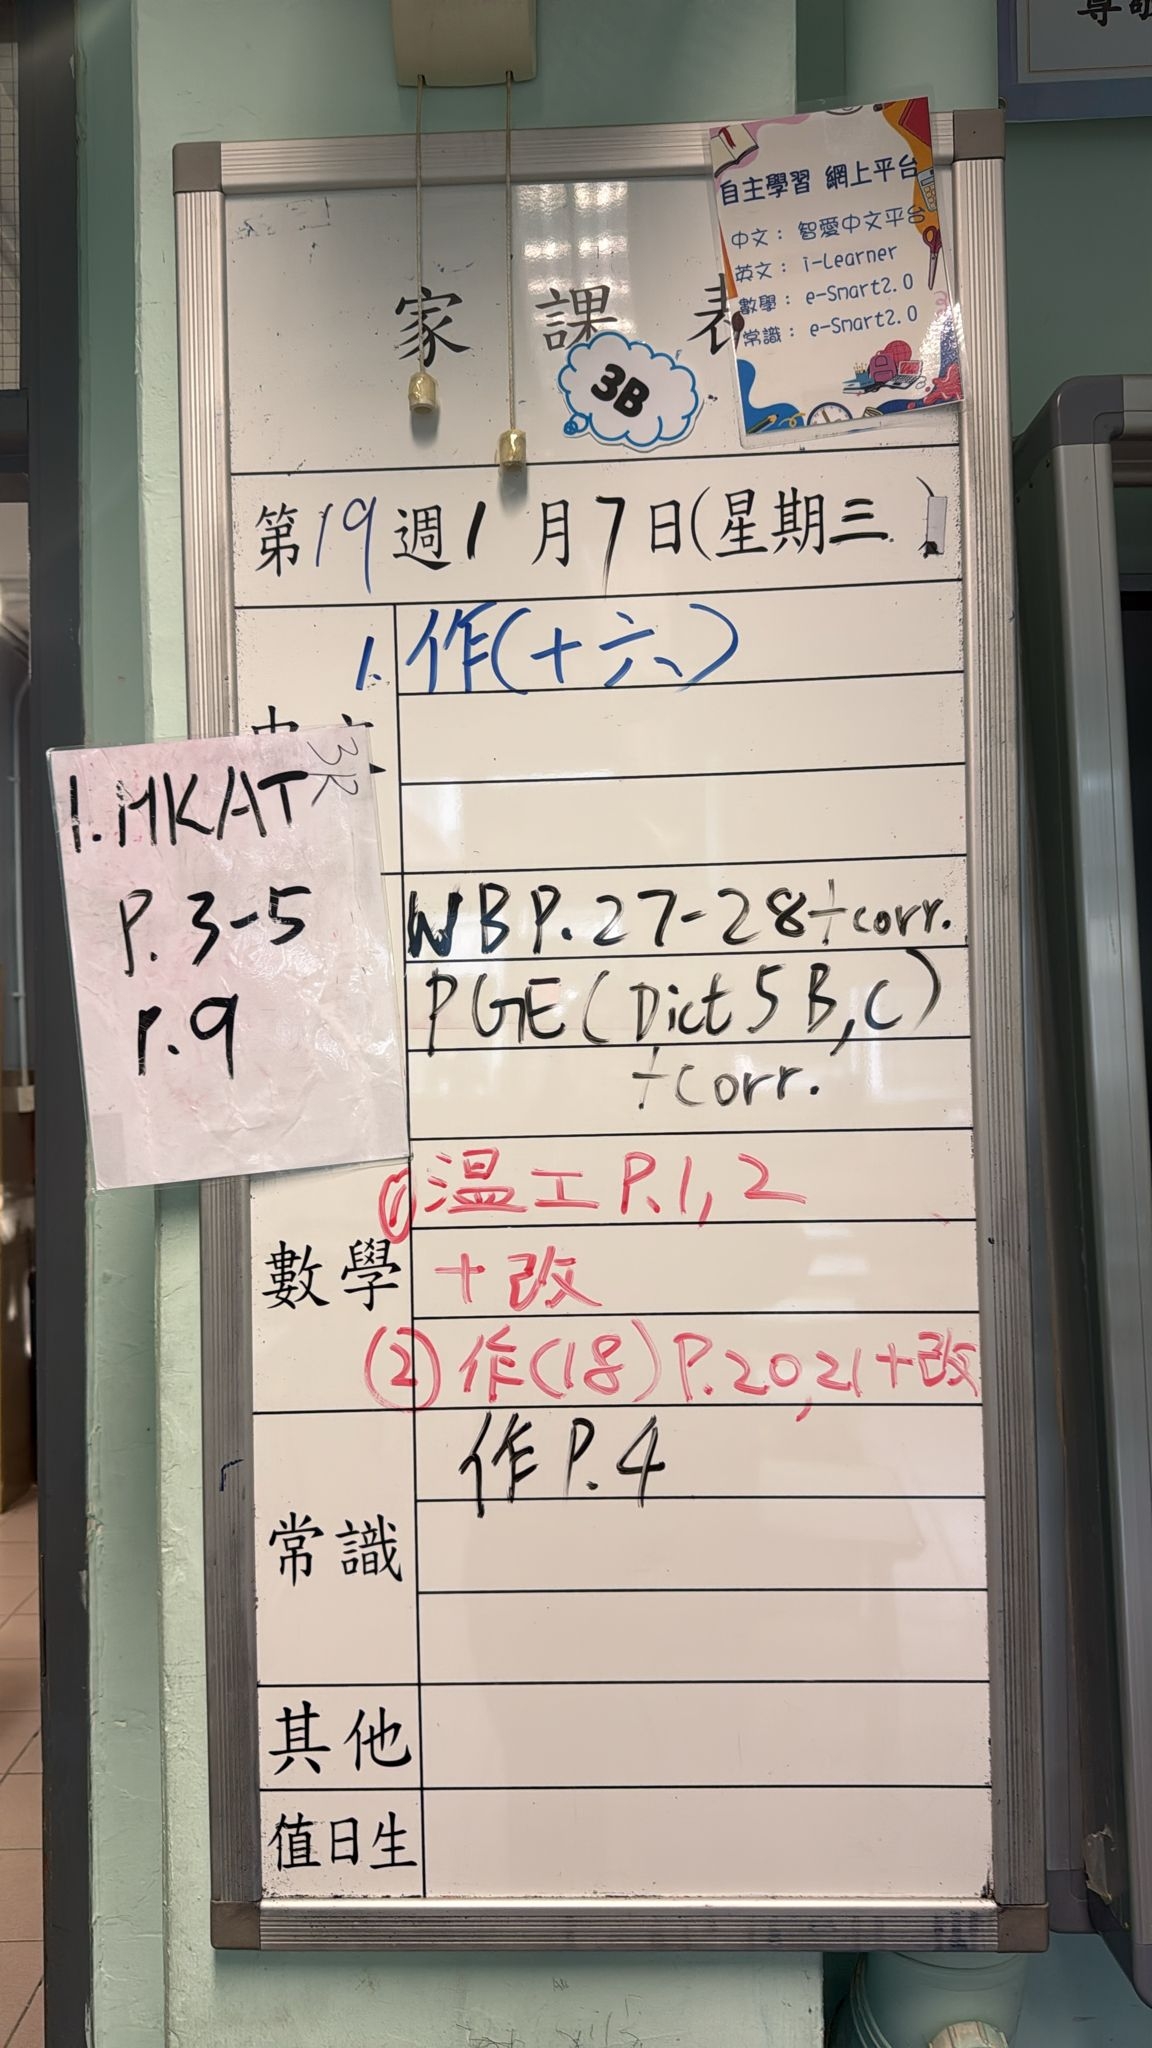 尊敬
自主學習 網上平台
中文： 智愛中文平台
英文： i-Learner
數學： e-Smart2.0
常識： e-Smart2.0
家 課 表
3B
第19週1月7日(星期三)
1. 作(十六)
1. HKAT
P. 3-5
P. 9
WB P. 27-28+corr.
PGE(Dict 5 B, C)
+corr.
數學
(1) 溫工 P.1, 2
+改
(2) 作(18) P.20, 21+改
常識
作 P. 4
其他
值日生